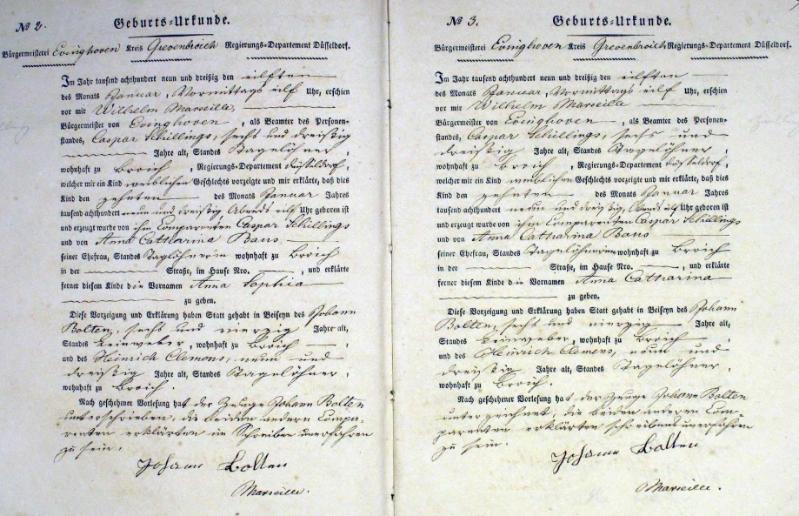 No 2.
Geburts-Urkunde.
Bürgermeisterei Evinghoven Kreis Grevenbroich Regierungs-Departement Düsseldorf.
Im Jahr tausend achthundert neun und dreißig den eilften
des Monats Januar, Vormittags eilf Uhr, erschien
vor mir Wilhelm Marseille,
Bürgermeister von Evinghoven, als Beamter des Personen-
standes, Caspar Schillings, sechs und dreißig
Jahre alt, Standes Tagelöhner,
wohnhaft zu Broich, Regierungs-Departement Düsseldorf,
welcher mir ein Kind weiblichen Geschlechts vorzeigte und mir erklärte, daß dies
Kind den zehnten des Monats Januar Jahres
tausend achthundert neun und dreißig Abends eilf Uhr geboren ist
und erzeugt wurde von ihm Comparenten Caspar Schillings
und von Anna Catharina Baus
seiner Ehefrau, Standes Taglöhnerin wohnhaft zu Broich
in der Straße, im Hause Nro. , und erklärte
ferner diesem Kinde die Vornamen Anna Sophia
zu geben.
Diese Vorzeigung und Erklärung haben Statt gehabt in Beiseyn des Johann
Bolten, sechs und vierzig Jahre alt,
Standes Leinweber, wohnhaft zu Broich
und des Heinrich Clemens, neun und
dreißig Jahre alt, Standes Tagelöhner,
wohnhaft zu Broich.
Nach geschehener Vorlesung hat der Zeuge Johann Bolten
unterschrieben, die beiden andern Compa-
renten erklärten im Schreiben unerfahren
zu sein.
Johann Bolten
Marseille.
No 3.
Geburts-Urkunde.
Bürgermeisterei Evinghoven Kreis Grevenbroich Regierungs-Departement Düsseldorf.
Im Jahr tausend achthundert neun und dreißig den eilften
des Monats Januar, Vormittags eilf Uhr, erschien
vor mir Wilhelm Marseille
Bürgermeister von Evinghoven, als Beamter des Personen-
standes, Caspar Schillings, sechs und
dreißig Jahre alt, Standes Tagelöhner
wohnhaft zu Broich, Regierungs-Departement Düsseldorf,
welcher mir ein Kind weiblichen Geschlechts vorzeigte und mir erklärte, daß dies
Kind den zehnten des Monats Januar Jahres
tausend achthundert neun und dreißig, Abends eilf Uhr geboren ist
und erzeugt wurde von ihm Comparenten Caspar Schillings
und von Anna Catharina Baus
seiner Ehefrau, Standes Tagelöhnerin wohnhaft zu Broich
in der Straße, im Hause Nro. , und erklärte
ferner diesem Kinde die Vornamen Anna Catharina
zu geben.
Diese Vorzeigung und Erklärung haben Statt gehabt in Beiseyn des Johann
Bolten, sechs und vierzig Jahre alt,
Standes Leinweber, wohnhaft zu Broich
und des Heinrich Clemens, neun und
dreißig Jahre alt, Standes Tagelöhner,
wohnhaft zu Broich.
Nach geschehener Vorlesung hat der Zeuge Johann Bolten
unterzeichnet, die beiden anderen Com-
parenten erklärten schreibens unerfahren
zu sein.
Johann Bolten
Marseille.